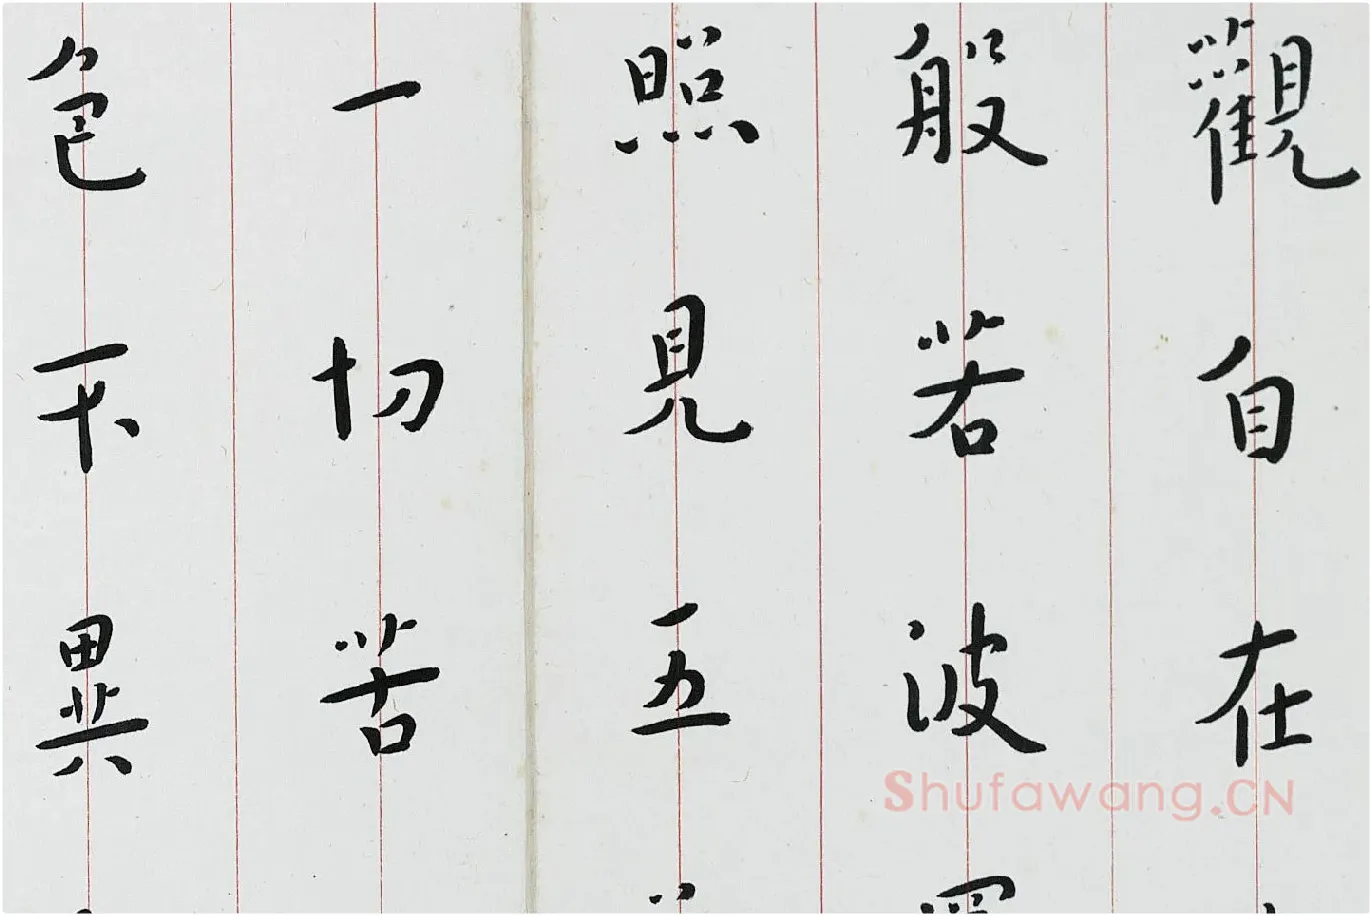 觀自在
般若波
照見五
一切苦
色不異
Shufawang.CN